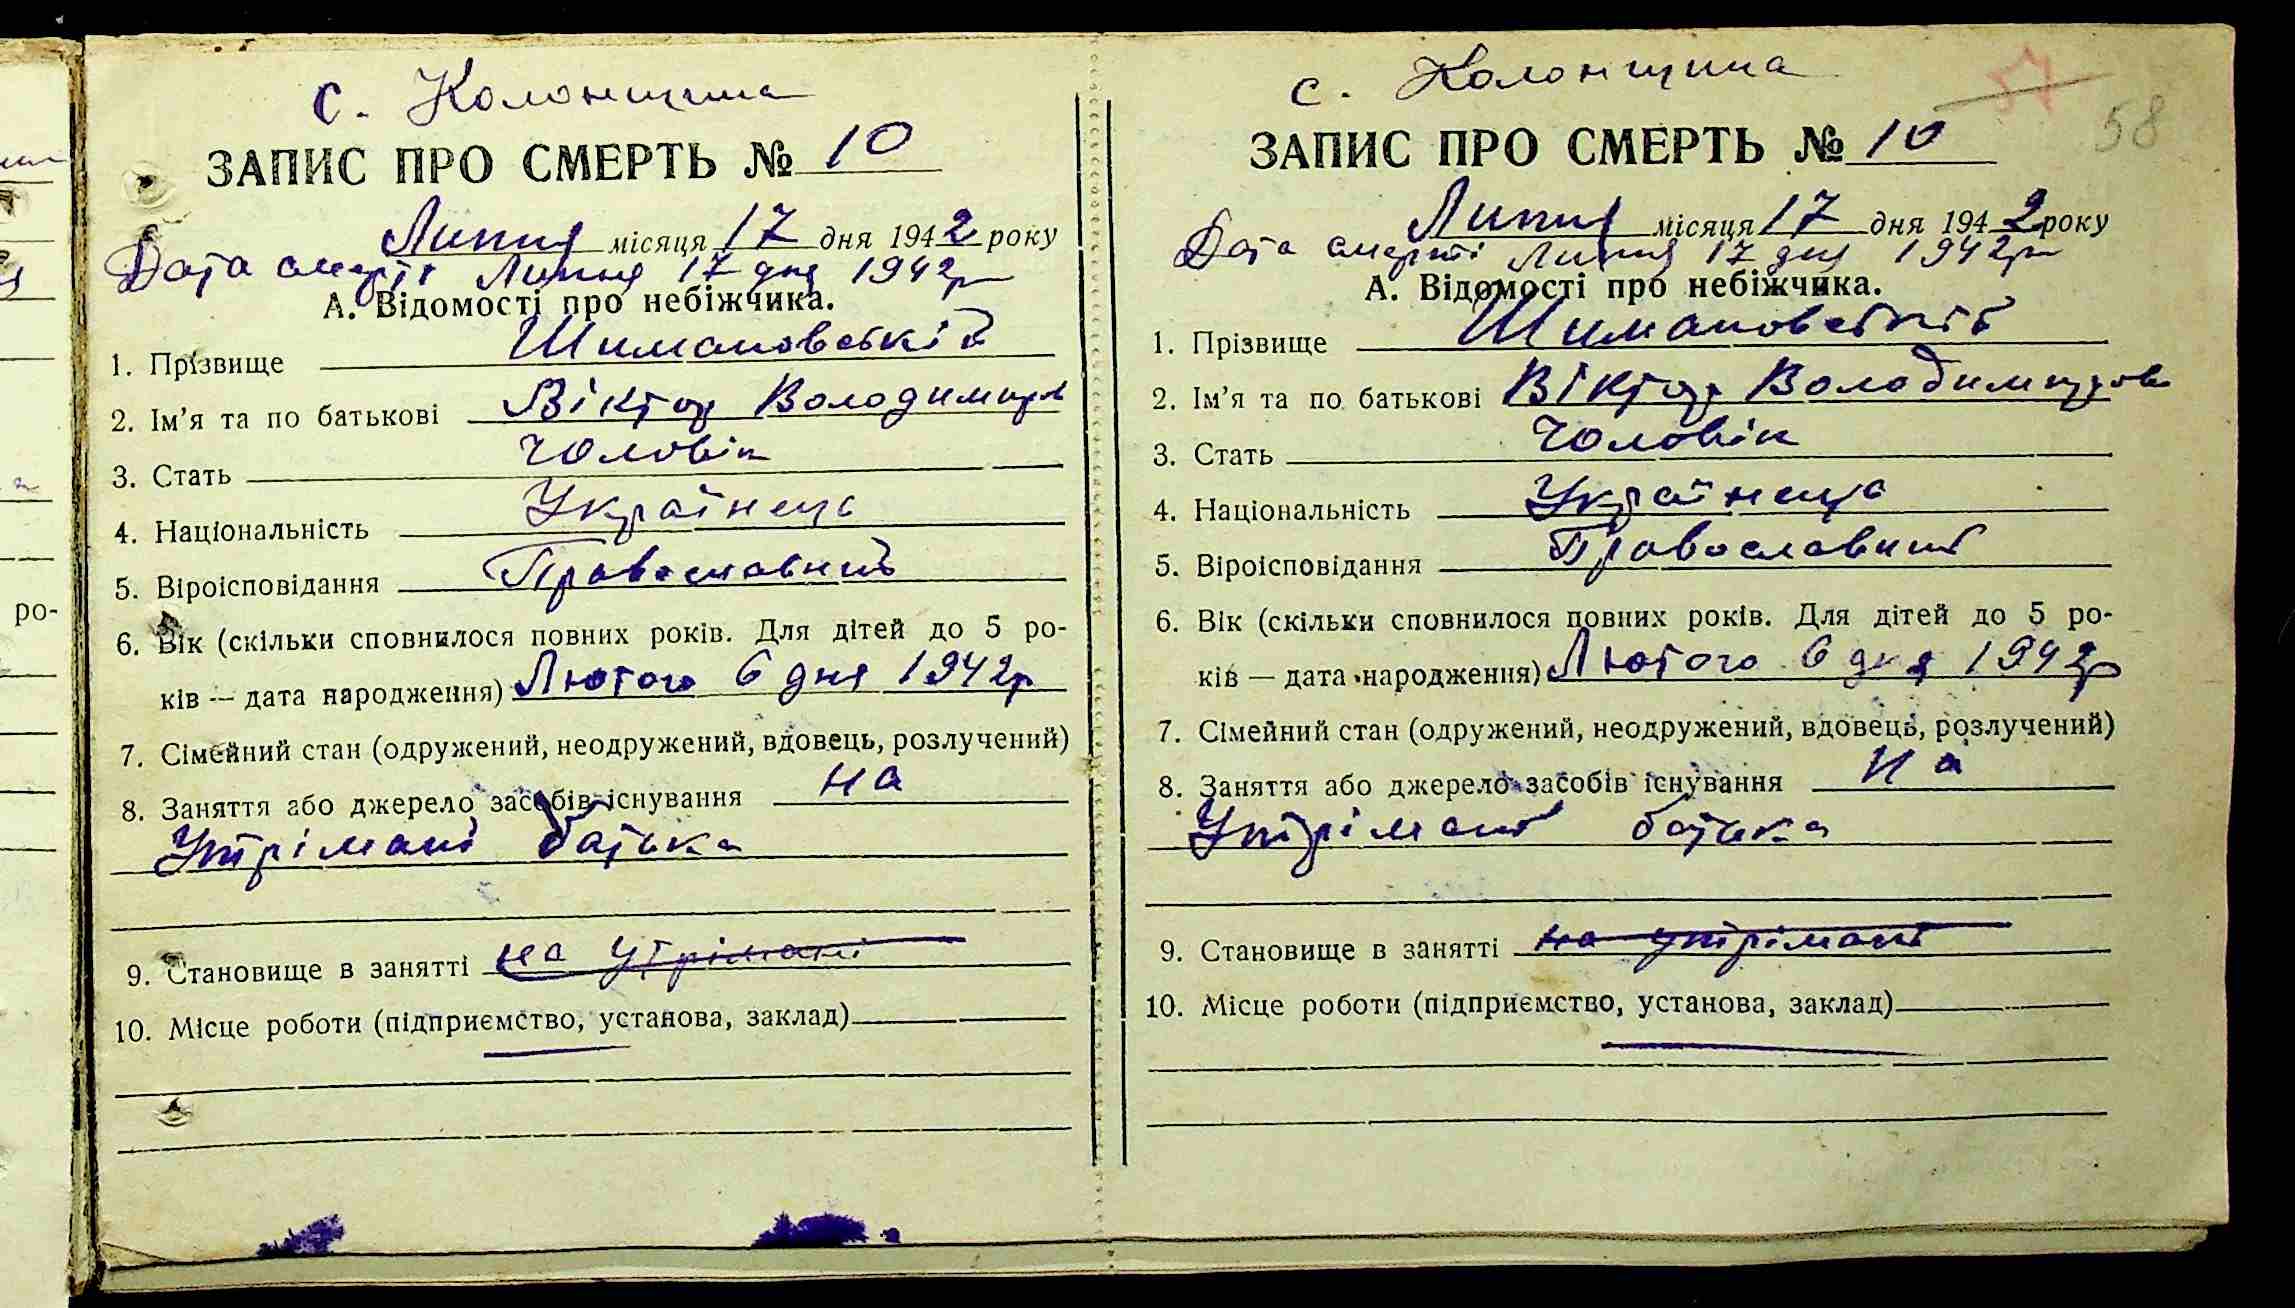 с. Колонщина
ЗАПИС ПРО СМЕРТЬ № 10
Липня місяця 17 дня 1942 року
Дата смерті Липня 17 дня 1942р
А. Відомості про небіжчика.
1. Прізвище Шимановський
2. Ім'я та по батькові Віктор Володимиров
3. Стать Чоловік
4. Національність Українець
5. Віроісповідання Православний
6. Вік (скільки сповнилося повних років. Для дітей до 5 ро-
ків — дата народження) Лютого 6 дня 1942р
7. Сімейний стан (одружений, неодружений, вдовець, розлучений)
8. Заняття або джерело засобів існування на
Утрімані батька
9. Становище в занятті на утрімані
10. Місце роботи (підприємство, установа, заклад)
с. Колонщина
57
58
ЗАПИС ПРО СМЕРТЬ № 10
Липня місяця 17 дня 1942 року
Дата смерті Липня 17 дня 1942р
А. Відомості про небіжчика.
1. Прізвище Шимановський
2. Ім'я та по батькові Віктор Володимиров
3. Стать Чоловік
4. Національність Українець
5. Віроісповідання Православний
6. Вік (скільки сповнилося повних років. Для дітей до 5 ро-
ків — дата народження) Лютого 6 дня 1942р
7. Сімейний стан (одружений, неодружений, вдовець, розлучений)
8. Заняття або джерело засобів існування на
Утрімані батька
9. Становище в занятті на утрімані
10. Місце роботи (підприємство, установа, заклад)
ро-